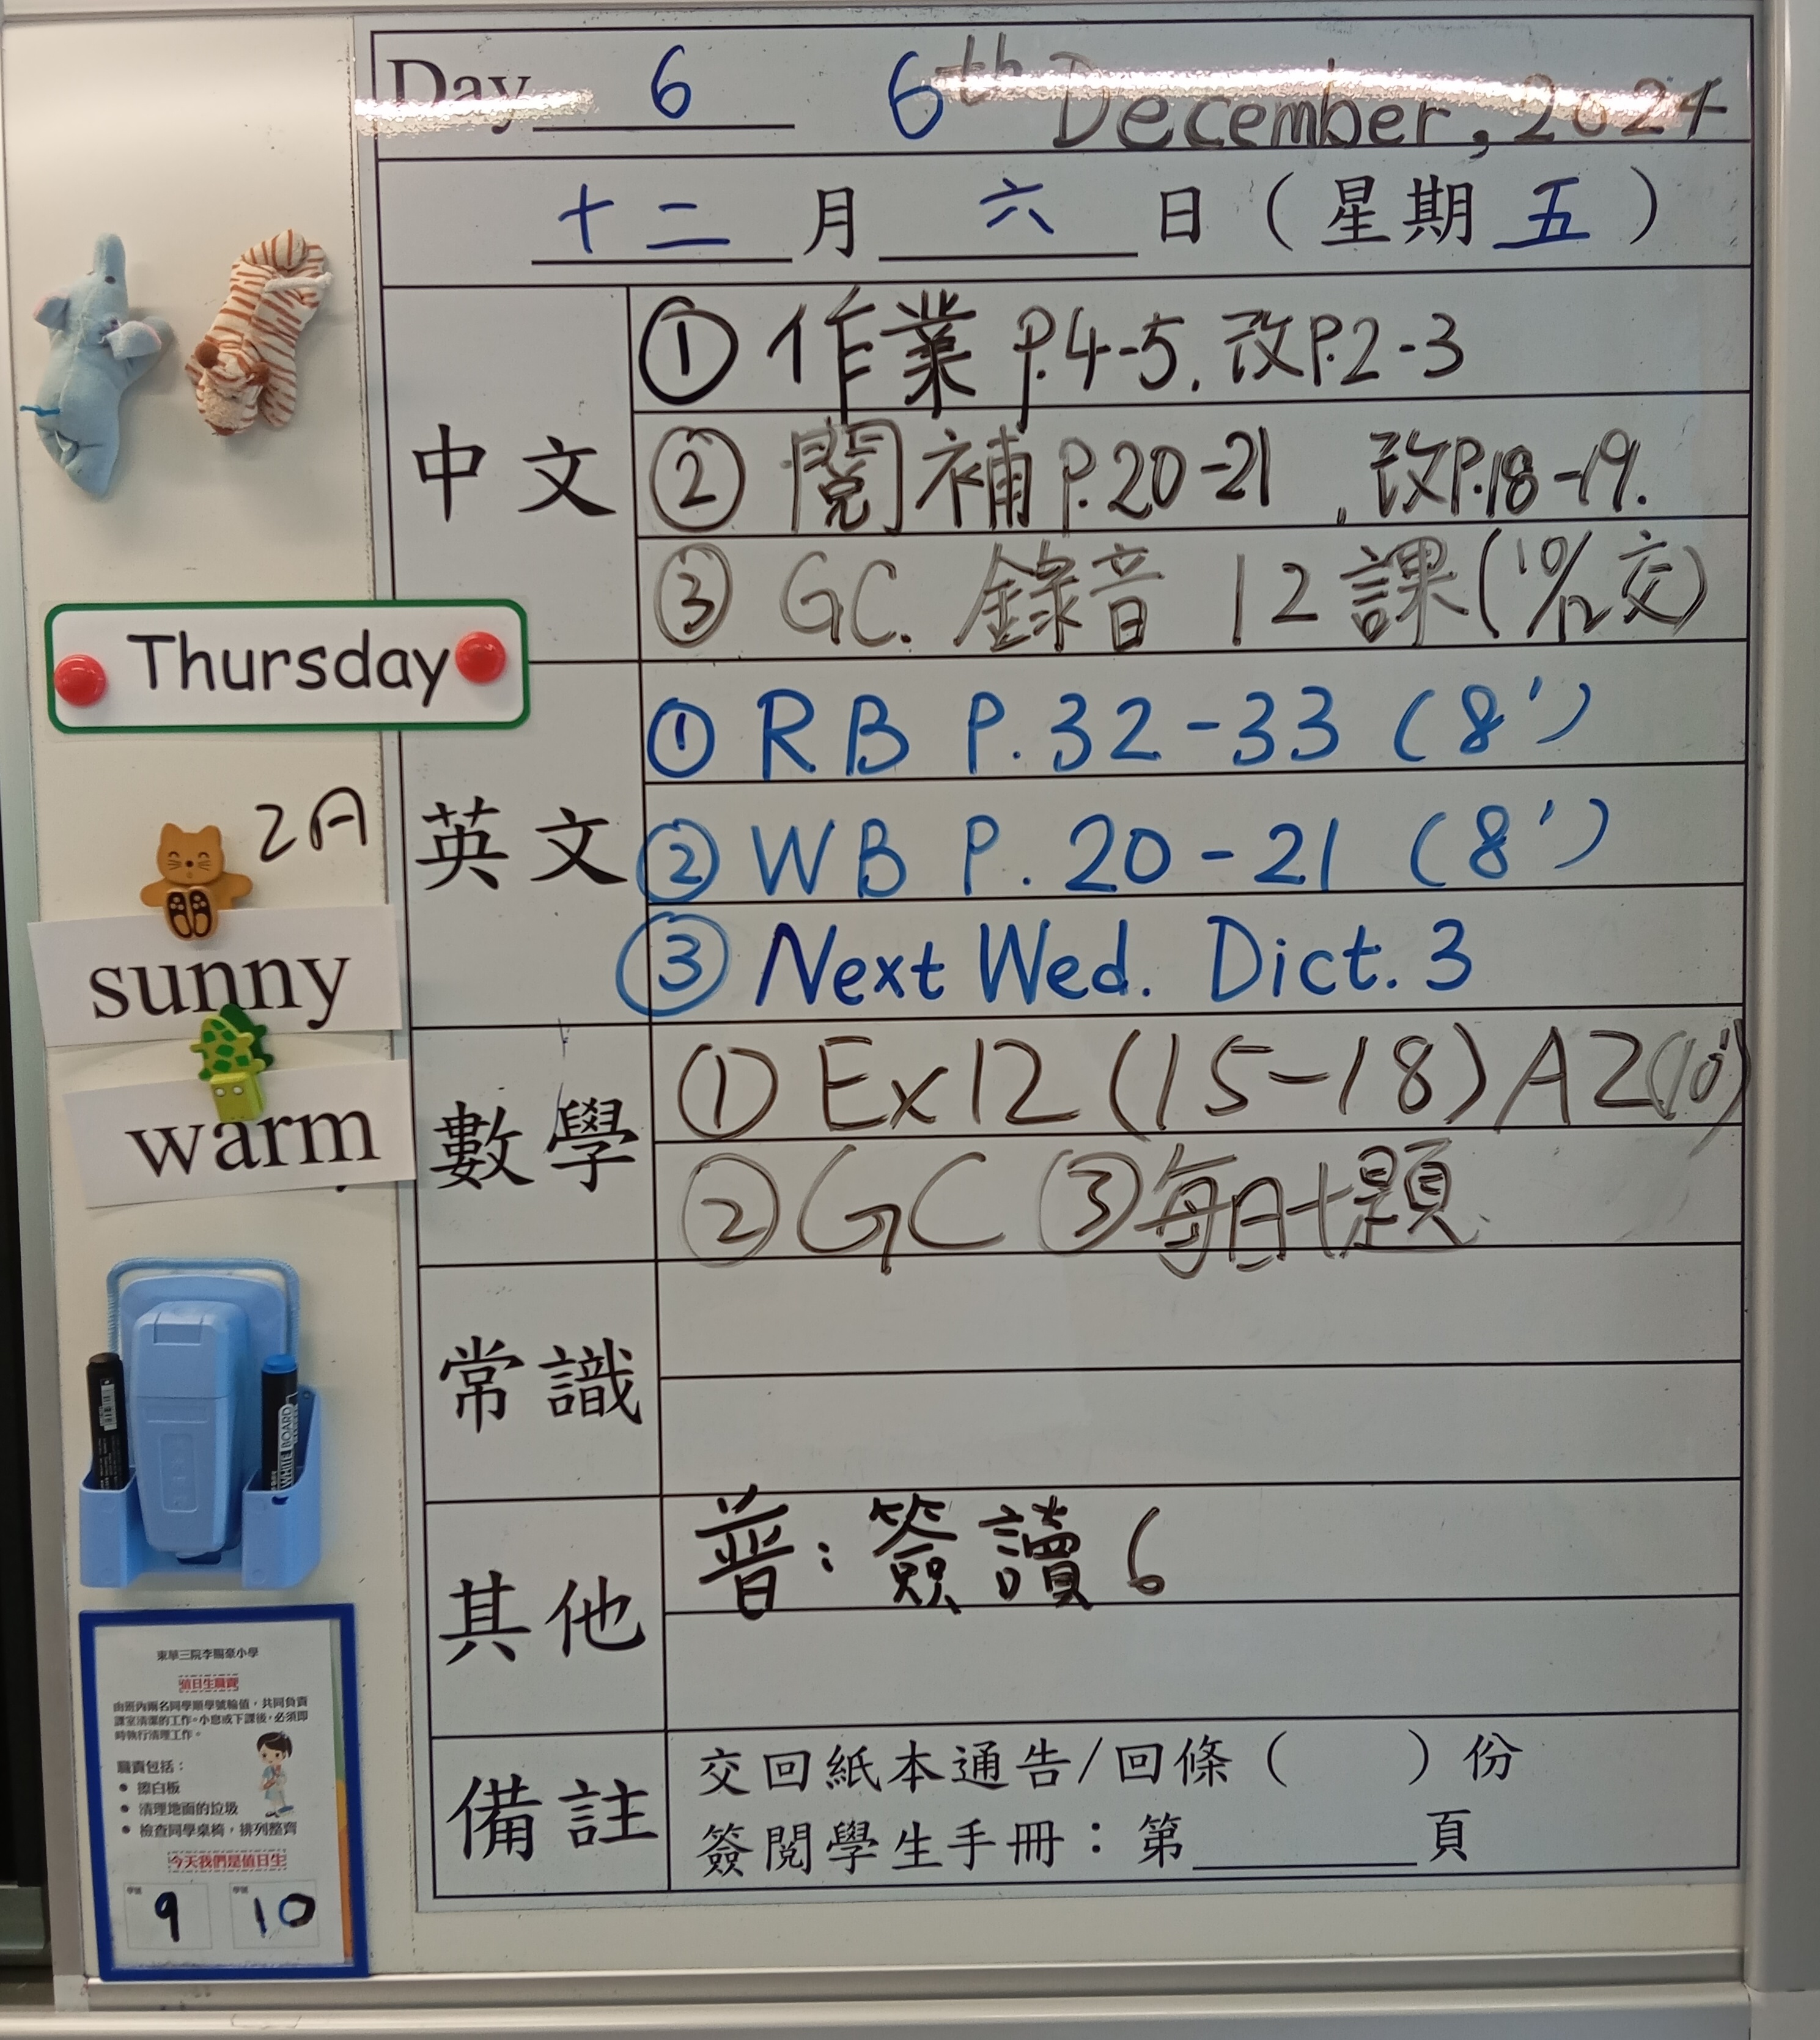 Day 6 6th December, 2024
十二月六日（星期五）
中文
① 作業 P.4-5. 改P.2-3
② 閱補 P.20-21 , 改P.18-19.
③ GC. 錄音 12課(10/12交)
Thursday
英文
① RB P.32-33 (8')
② WB P.20-21 (8')
③ Next Wed. Dict. 3
2A
sunny
warm
數學
① Ex12 (15-18) A2(10')
② GC ③ 每日十題
常識
其他
普：簽讀6
備註
交回紙本通告/回條（ ）份
簽閱學生手冊：第______頁
東華三院李賜豪小學
值日生職責
由班內兩名同學順學號輪值，共同負責
課室清潔的工作。小息或下課後，必須即
時執行清理工作。
職責包括：
● 擦白板
● 清理地面的垃圾
● 檢查同學桌椅，排列整齊
今天我們是值日生
學號 9 學號 10
WHITE BOARD